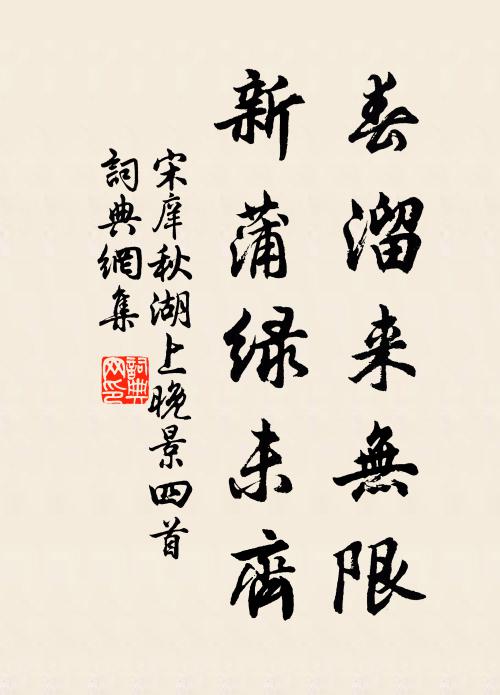 春溜来無限
新蒲绿未齊
宋庠秋湖上晚景四首
詞典網集
詞典
网印